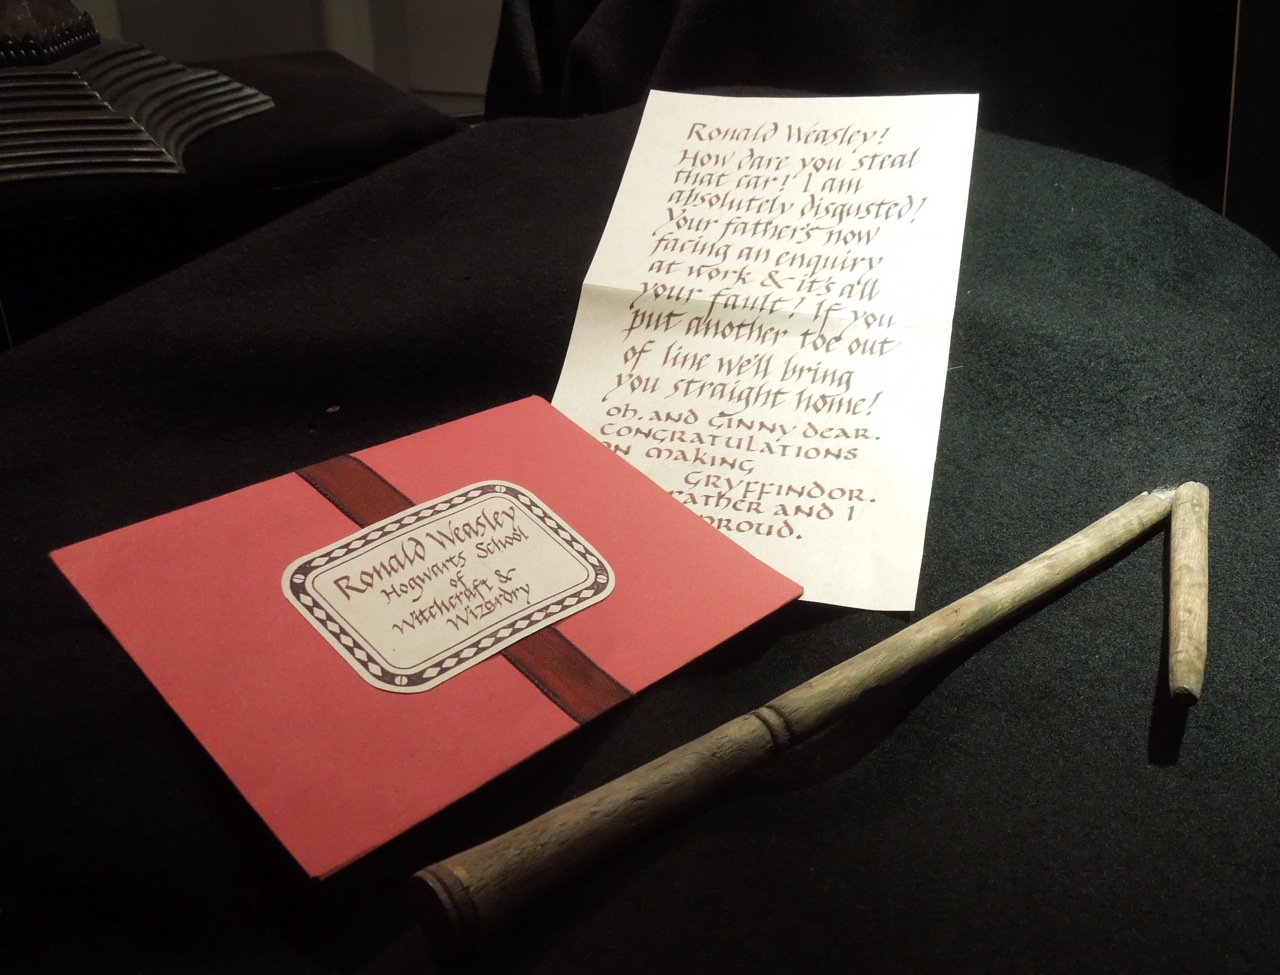 Ronald Weasley!
How dare you steal
that car! I am
absolutely disgusted!
Your father's now
facing an enquiry
at work & it's all
your fault! If you
put another toe out
of line we'll bring
you straight home!
oh. and Ginny dear.
CONGRATULATIONS
ON MAKING
GRYFFINDOR.
FATHER AND I
PROUD.
Ronald Weasley
Hogwarts School
of
Witchcraft &
Wizardry